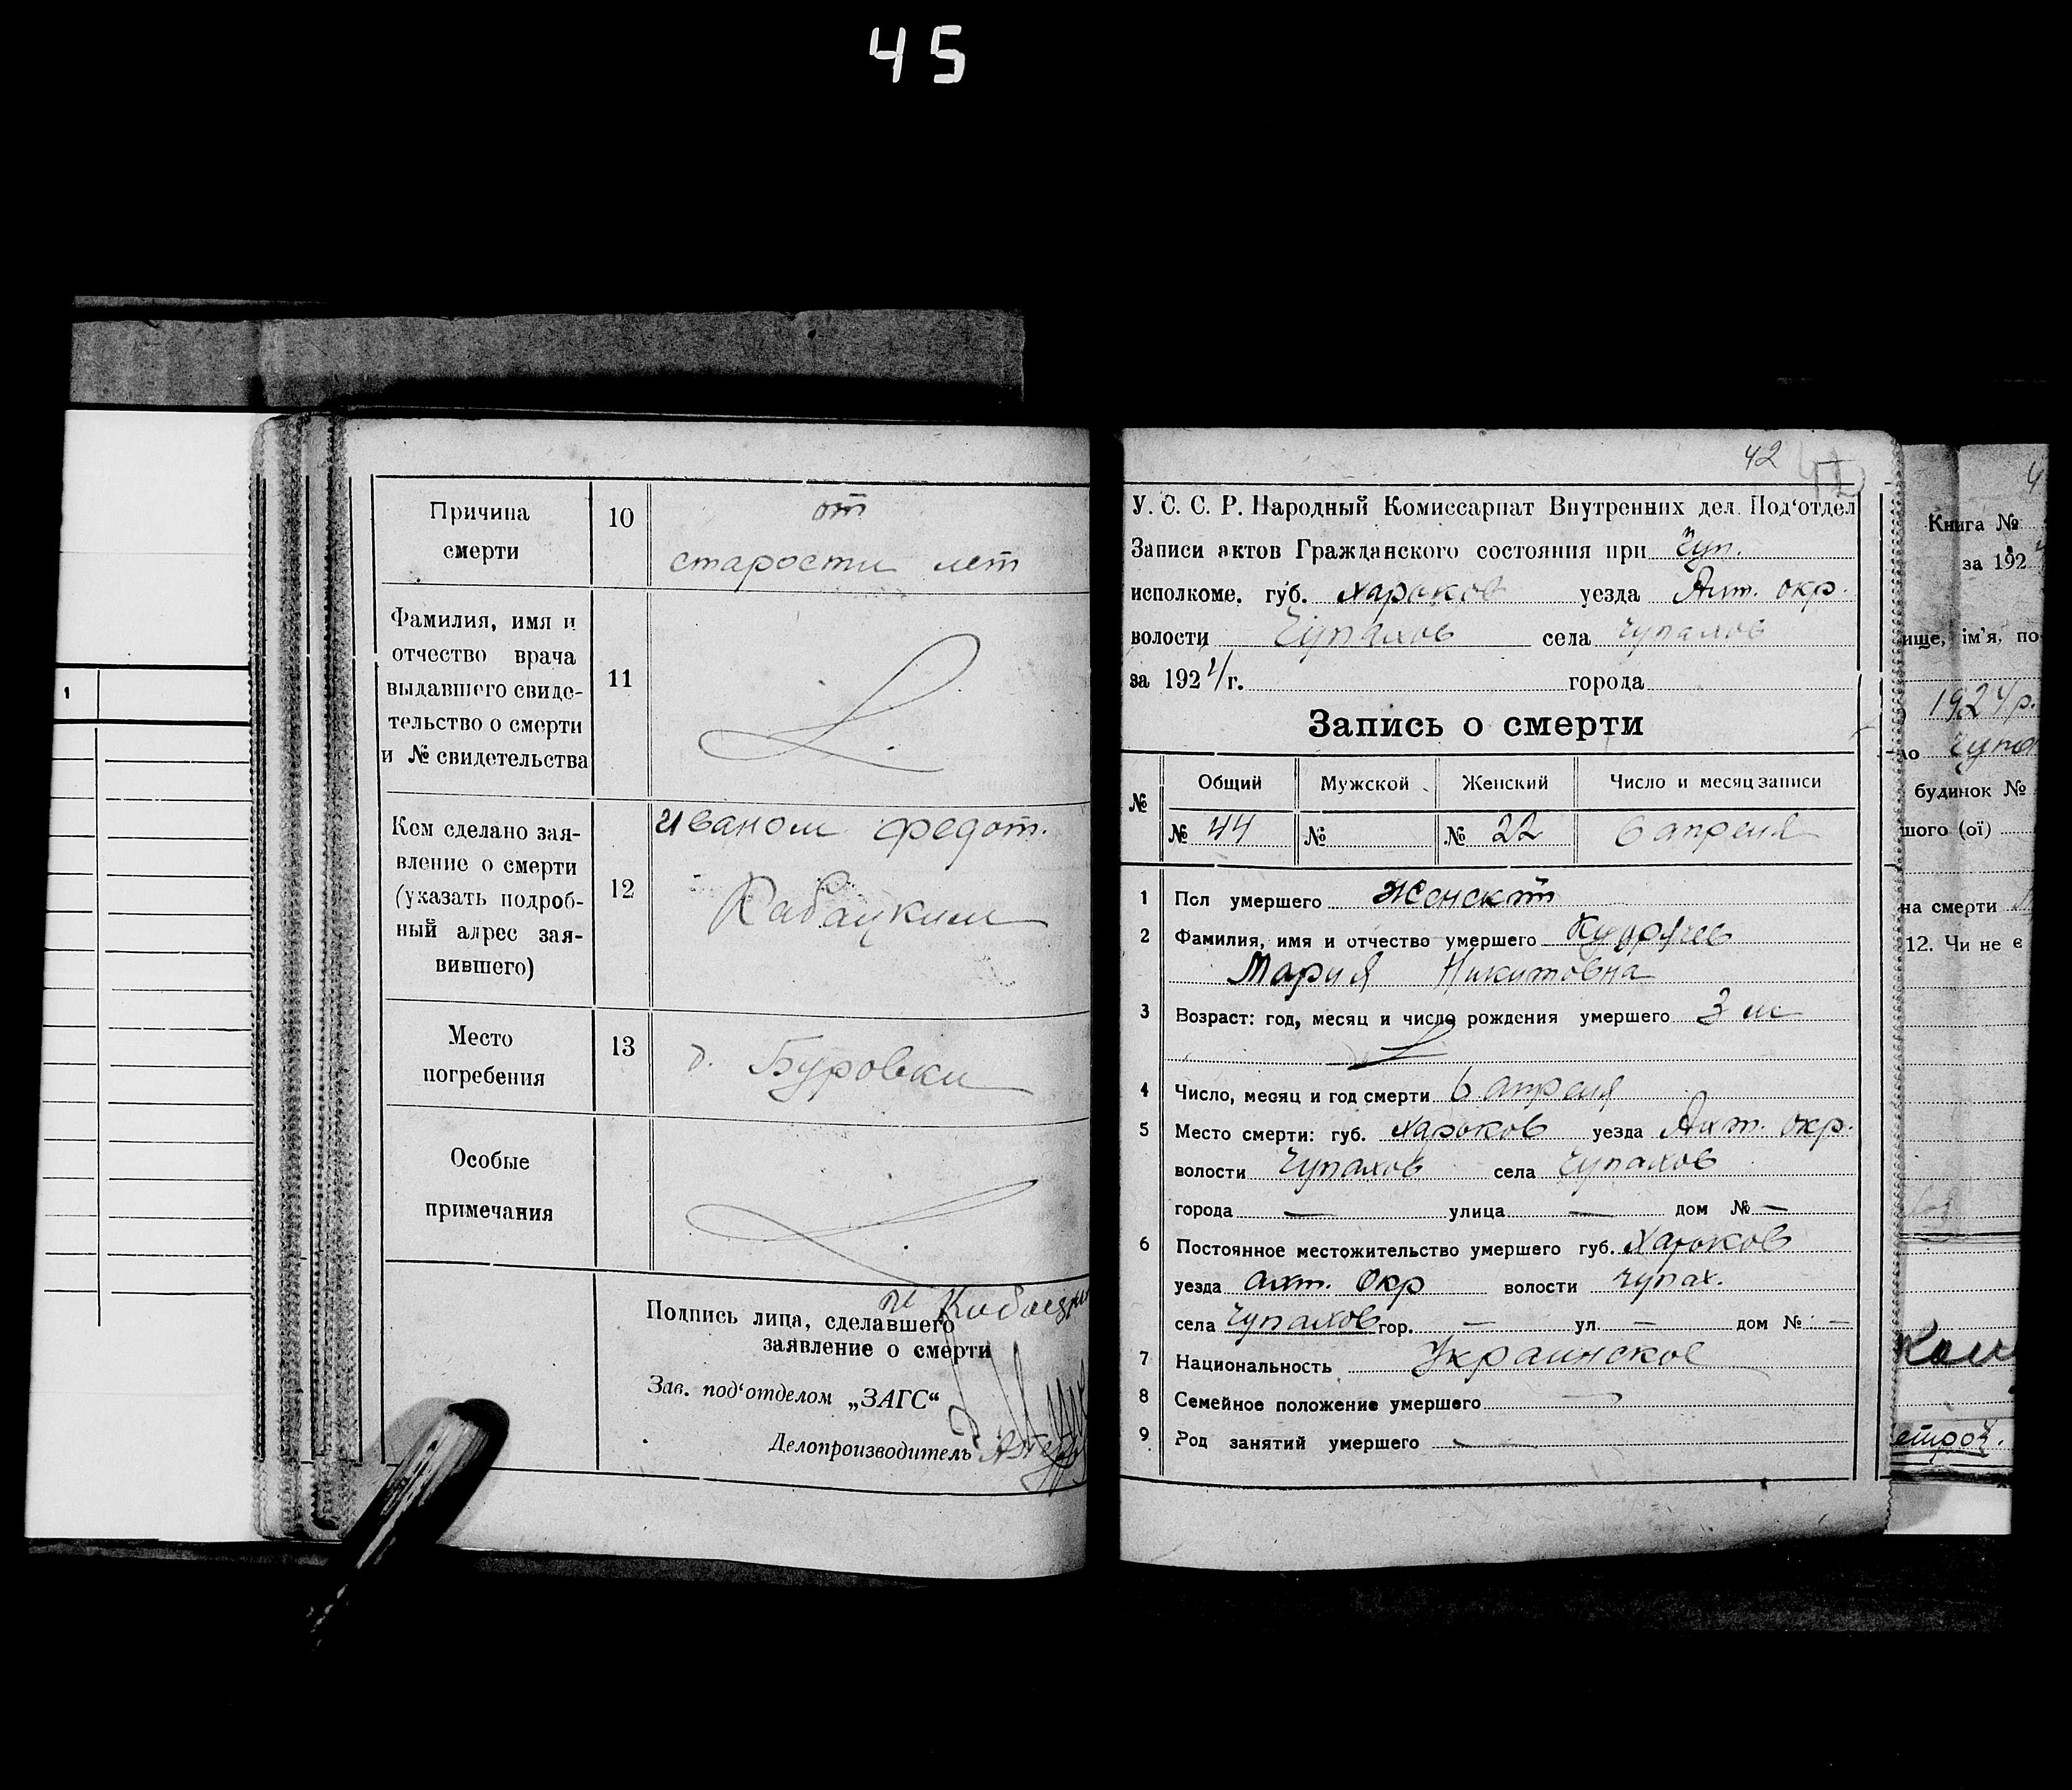 45
1
Причина
смерти
10
от
старости лет
Фамилия, имя и
отчество врача
выдавшего свиде-
тельство о смерти
и № свидетельства
11
Кем сделано зая-
вление о смерти
(указать подроб-
ный адрес зая-
вившего)
12
Иваном Федот.
Кабацким
Место
погребения
13
д. Буровки
Особые
примечания
Подпись лица, сделавшего
заявление о смерти
Зав. под‘отделом „ЗАГС“
Делопроизводитель
42
У. С. С. Р. Народный Комиссариат Внутренних дел. Под‘отдел
Записи актов Гражданского состояния при Чуп.
исполкоме. губ. Харьков уезда Ахт. окр.
волости Чупахов села Чупахов
за 1924 г. города
Запись о смерти
№ Общий Мужской Женский Число и месяц записи
№ 44 № № 22 6 апреля
1 Пол умершего
2 Фамилия, имя и отчество умершего
Мария Никитовна
3 Возраст: год, месяц и число рождения умершего 3 м
4 Число, месяц и год смерти 6 апреля
5 Место смерти: губ. Харьков уезда Ахт. окр.
волости Чупахов села Чупахов
города — улица — дом № —
6 Постоянное местожительство умершего губ. Харьков
уезда Ахт. Окр волости Чупах.
села Чупахов гор. — ул. — дом № —
7 Национальность Украинское
8 Семейное положение умершего —
9 Род занятий умершего —
Книга №
за 192
ище, ім’я, по
1924 р.
будинок №
шого (ої)
на смерти
12. Чи не є